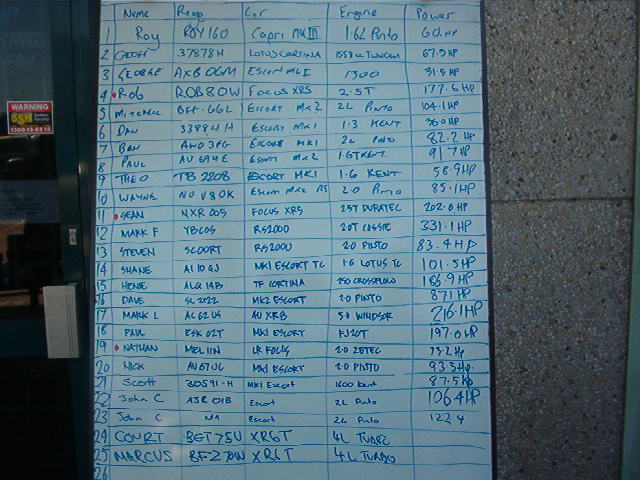 Name Rego Car Engine Power
1 Roy ROY160 Capri MK III 1.6L Pinto 60.HP
2 GEOFF 37878H LOTUS CORTINA 1558cc TWINCAM 67.9HP
3 GEORGE AXB 06M Escort Mk II 1300 31.5HP
4 Rob ROB80W FOCUS XR5 2.5T 177.6HP
5 MITCHELL BFF-66L ESCORT MK2 2L PINTO 104.1HP
6 DAN 33884H ESCORT MK1 1.3 KENT HP
7 BEN ESCORT MK1 2L PINTO 82.2 HP
8 PAUL AU Escort MK2 1.6 KENT. 91.7HP
9 THEO TB 2208 ESCORT MK1 1.6 KENT 58.9HP
10 WAYNE NO V80K Escort MK2 RS 2.0 Pinto 85.1HP
11 SEAN NXR 005 FOCUS XR5 25T DURATEC 202.8 HP
12 MARK F YBCOS RS2000 20T COSSIE 331.1HP
13 STEVEN SCOORT RS2000 20 PINTO 83.4HP
14 SHANE AI 10 GJ MK1 ESCORT TC 1.6 LOTUS TC 101.5HP
15 HENIE ALG 14B TF CORTINA 250 CROSSFLOW HP
16 DAVE SL 2122 MK2 ESCORT 2.0 PINTO 87.1HP
17 MARK L AC62US AU XR8 5.0 WINDSOR 216.1HP
18 PAUL ESK 02T MK1 ESCORT FJ20T 197.0HP
19 NATHAN MEL11N LR FOCUS 2.0 ZETEC 73.2HP
20 NICK MK1 ESCORT 2.0 PINTO 93.5Hp
21 Scott 30591-H MK1 Escort 1600 Kent 87.5Hp
22 John C ASR 01B Escort 2L Pinto 106.4HP
23 John C N/A Escort 2L Pinto 122.4
24 COURT BGT75U XR6T 4L TURBO
25 MARCUS BFZ70W XR6T 4L TURBO
26
WARNING
1300 13 45 15